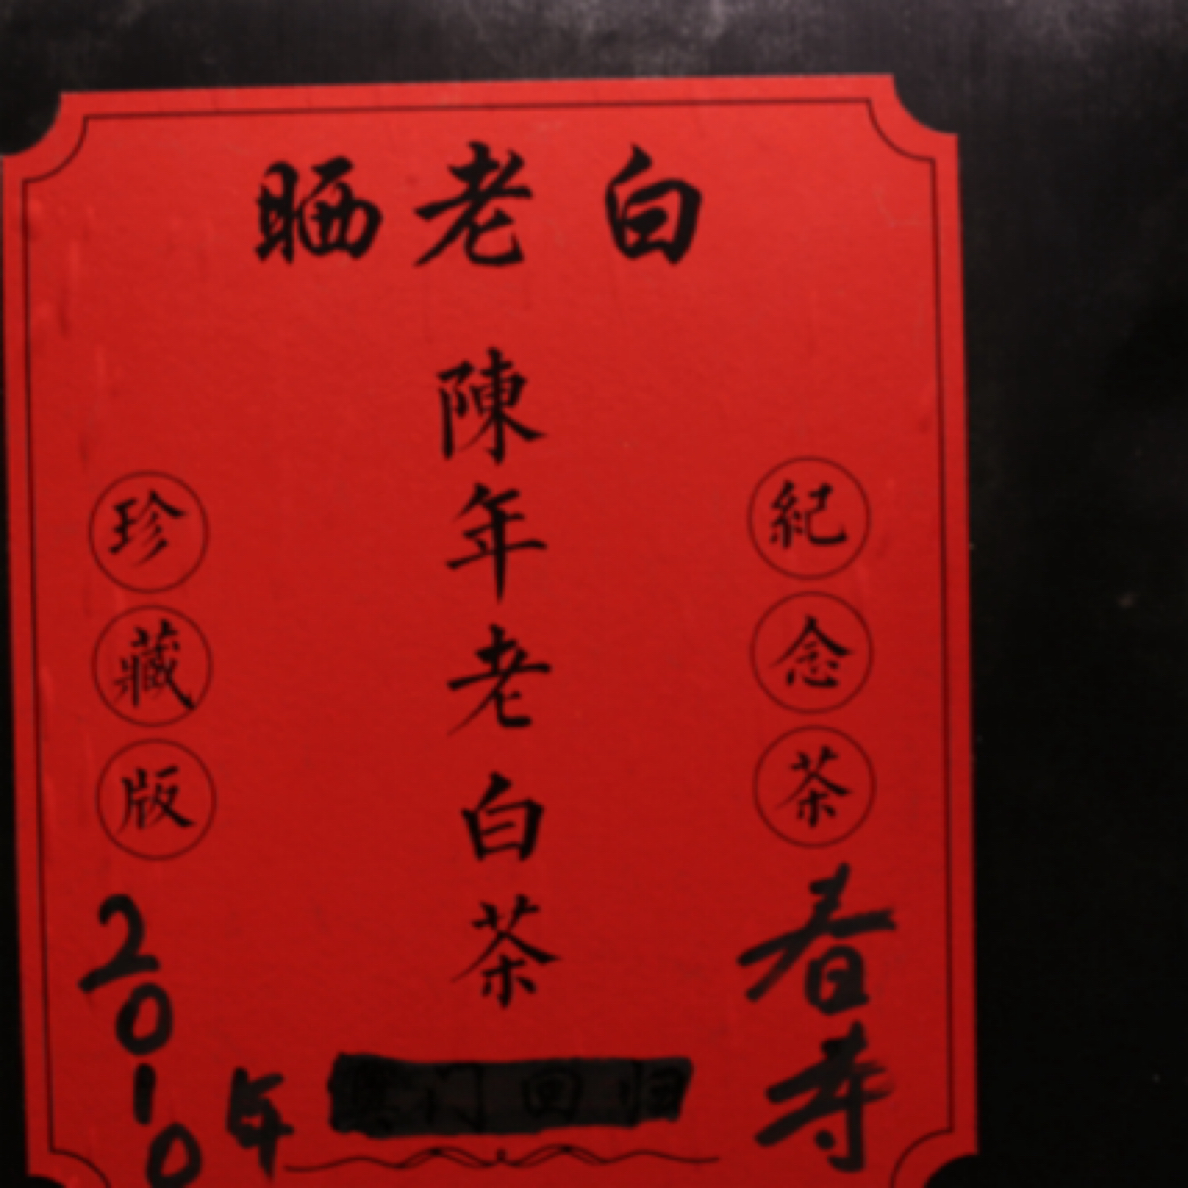 晒老白
紀念茶
春寿
陳年老白茶
珍藏版
2010年
澳门回归